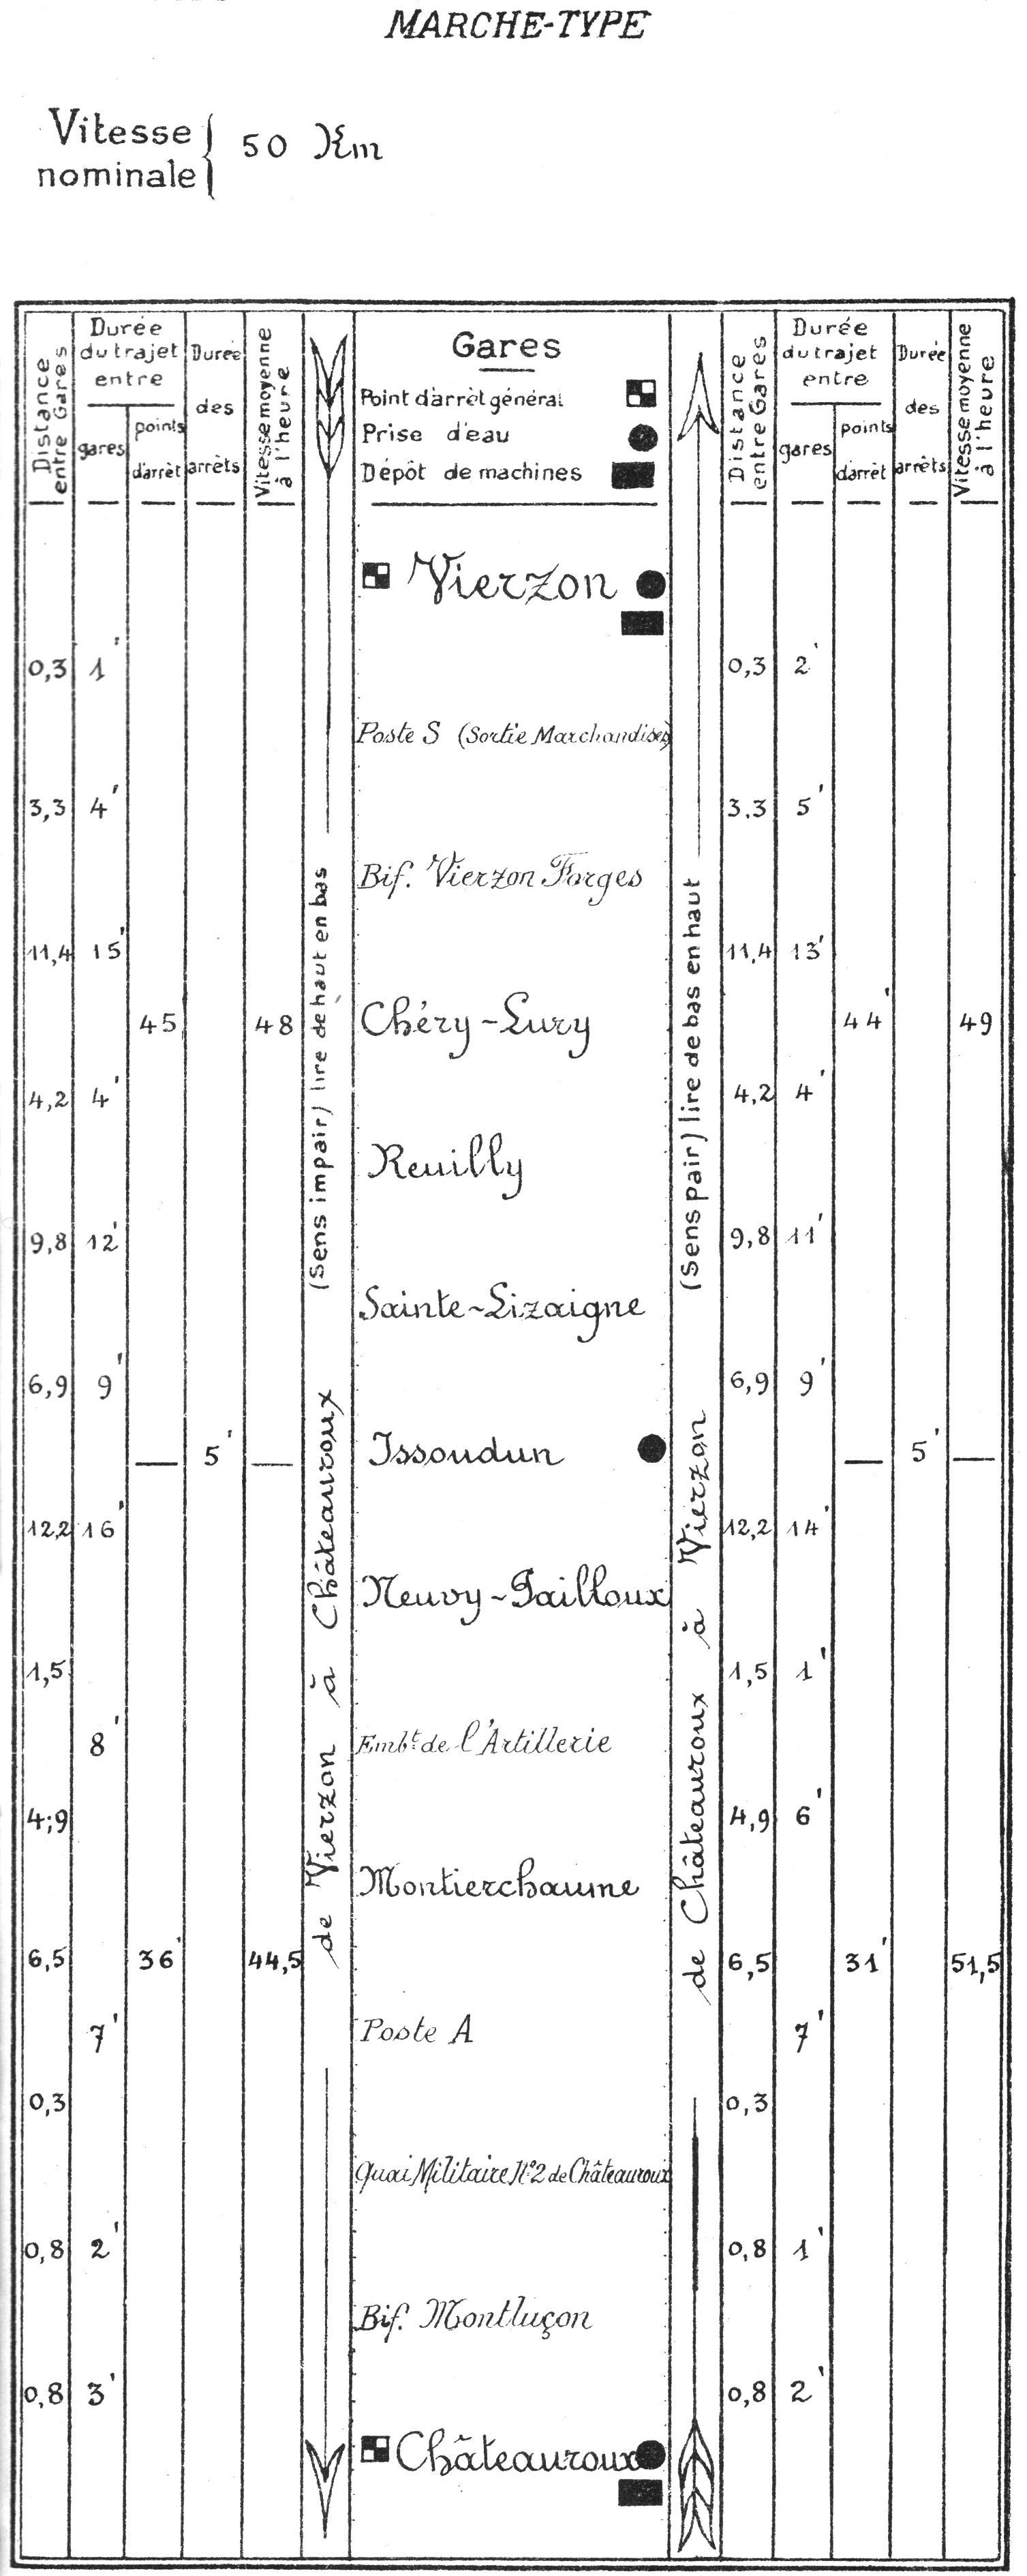 MARCHE-TYPE
Vitesse nominale { 50 Km
Distance entre Gares
Durée du trajet entre
gares
points d'arrêt
Durée des arrêts
Vitesse moyenne à l'heure
Gares
Point d'arrêt général
Prise d'eau
Dépôt de machines
Distance entre Gares
Durée du trajet entre
gares
points d'arrêt
Durée des arrêts
Vitesse moyenne à l'heure
de Vierzon à Châteauroux (Sens impair) lire de haut en bas
de Châteauroux à Vierzon (Sens pair) lire de bas en haut
Vierzon
0,3 1' 0,3 2'
Poste S (Sortie Marchandises)
3,3 4' 3,3 5'
Bif. Vierzon Forges
11,4 15' 11,4 13'
45 48 Chéry-Lury 44' 49
4,2 4' 4,2 4'
Reuilly
9,8 12' 9,8 11'
Sainte-Lizaigne
6,9 9' 6,9 9'
5' Issoudun 5'
12,2 16' 12,2 14'
Neuvy-Pailloux
1,5 1,5 1'
8' Embt. de l'Artillerie
4,9 4,9 6'
Montierchaume
6,5 36' 44,5 6,5 31' 51,5
7' Poste A 7'
0,3 0,3
Quai Militaire N°2 de Châteauroux
0,8 2' 0,8 1'
Bif. Montluçon
0,8 3' 0,8 2'
Châteauroux